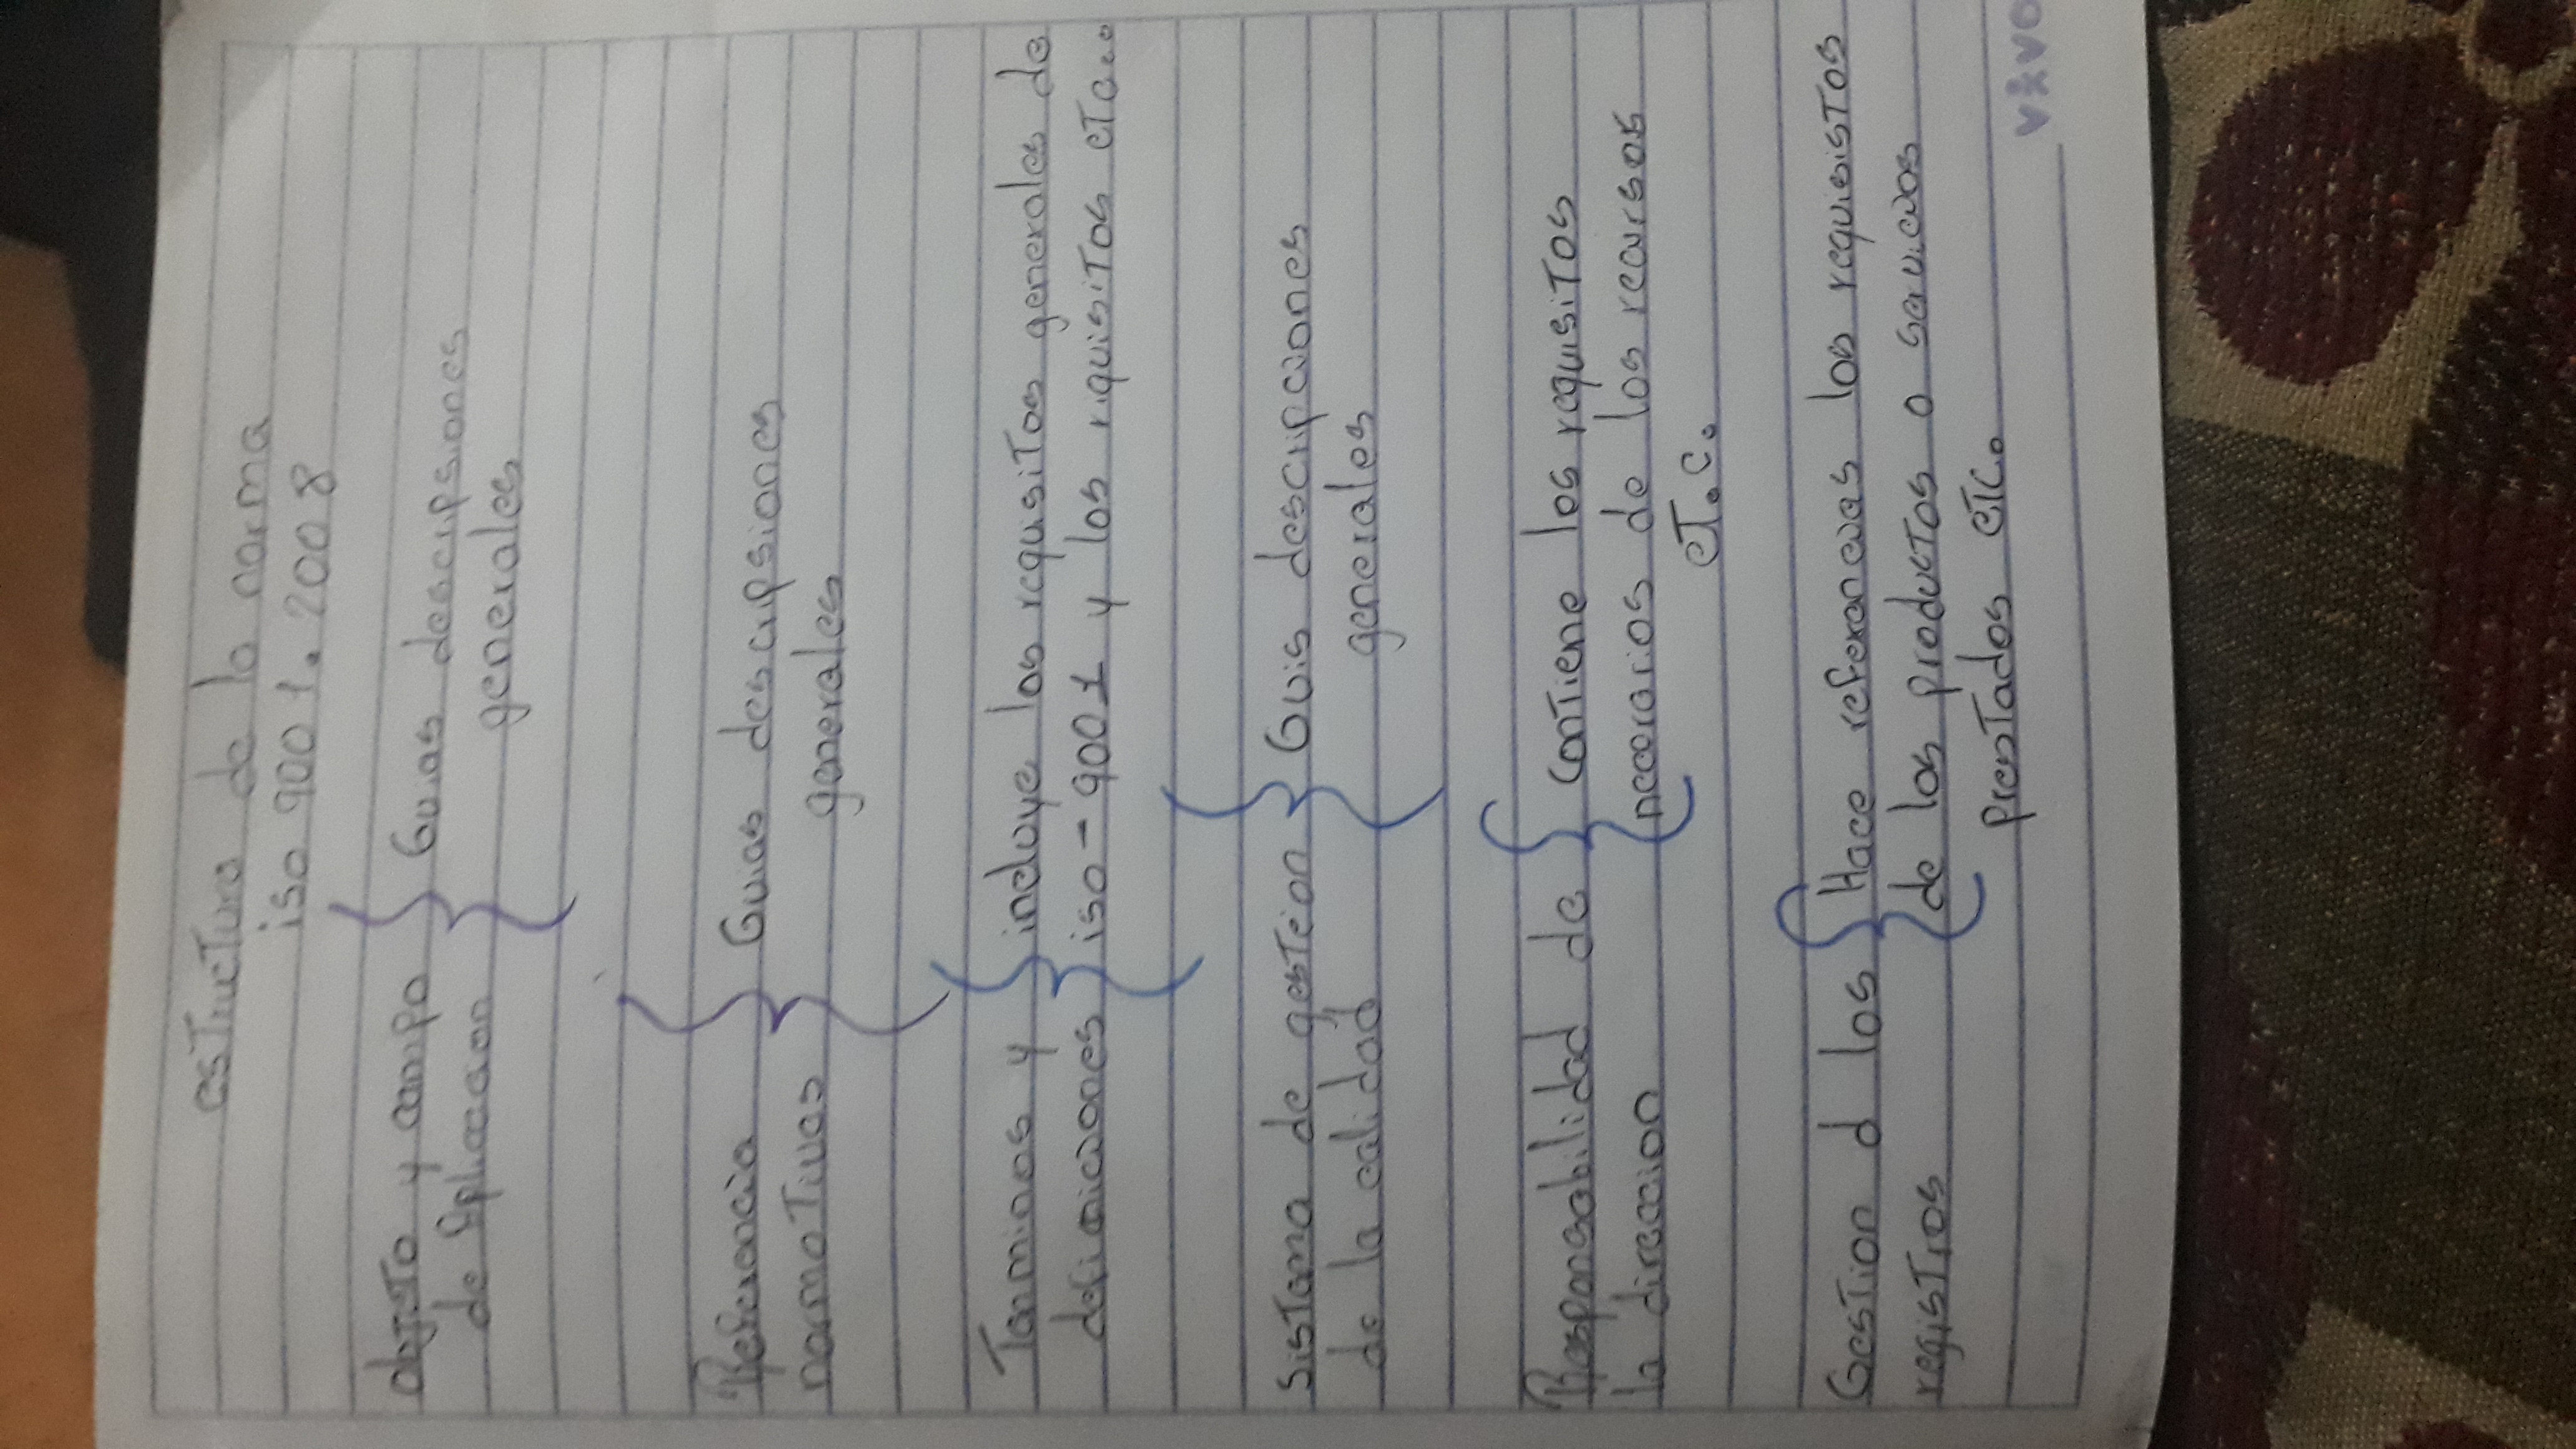 esTrucTura de la norma
iso 9001.2008
objeTo y campo
de Aplicacion
Guias descripsiones
generales
Referencia
normaTivas
Guias descripsiones
generales
Terminos y
definiciones
incluye los requisiTos generales de
iso-9001 y los riquisiTos eTc..
SisTema de gesTeion
de la calidad
Guis descripciones
generales
Responsabilidad de
la direccion
ConTiene los requisiTos
necerarios de los recursos
eT.c.
GesTion d los
regisTros
Hace referencias los requisisTos
de los producTos o servicios
presTados eTc.
vivo